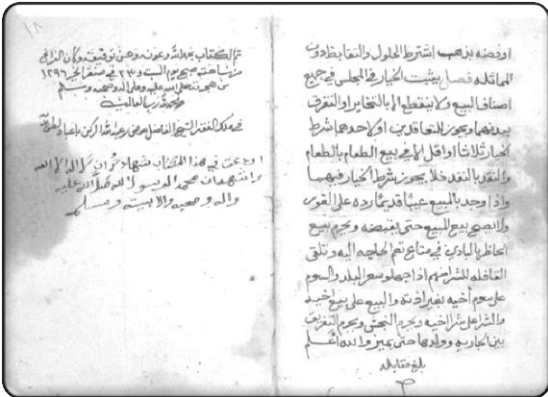 او فضه بذهب اشترط الحلول والتقابض دون
المماثله فصل يثبت الخيار في المجلس في جميع
اصناف البيع ولا ينقطع الا بالتخاير او التفرق
بيدهما ويجوز للمتعاقدين او لاحدهما شرط
الخيار ثلاثا او اقل الا في بيع الطعام بالطعام
والنقد بالنقد فلا يجوز شرط الخيار فيهما
واذا وجد بالمبيع عيبا قديما رده على الفور
ولا يصح بيع المبيع حتى يقبضه ويحرم بيع
الحاظر بالبادي في متاع تعم الحاجه اليه وتلقي
القافله للشرا منهم اذا جهلو سعر البلد والسوم
على سوم أخيه بغير اذنه والبيع على بيع اخيه
والشرا على شرا اخيه ويحرم النجش ويحرم التفريق
بين الجاريه وولدها حتى يميز والله أعلم
بلغ مقابله
١٨
تم الكتاب بحمد الله وعونه وحسن توفيقه وكان الفراغ
من يوم السبت ٢٣ في صفر الخير ١٢٩٦
من هجرته صلى الله عليه وعلى اله وصحبه وسلم
والحمد لله رب العالمين
الفاضل عبدالله
اودعت في هذا الكتاب شهادة ان لا اله الا الله
واشهد ان محمد الرسول الله صلى الله عليه
واله وصحبه وسلم